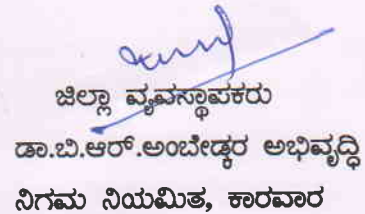 ಜಿಲ್ಲಾ ವ್ಯವಸ್ಥಾಪಕರು
ಡಾ.ಬಿ.ಆರ್.ಅಂಬೇಡ್ಕರ ಅಭಿವೃದ್ಧಿ
ನಿಗಮ ನಿಯಮಿತ, ಕಾರವಾರ